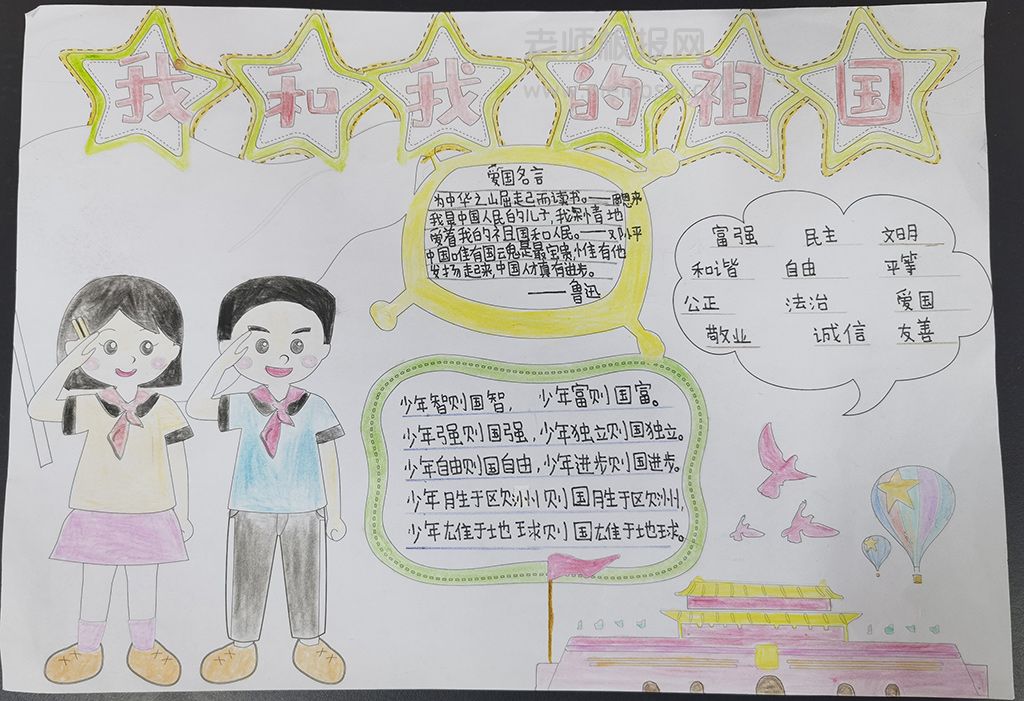 我和我的祖国
老师板报网
爱国名言
为中华之崛起己而读书。——周恩来
我是中国人民的儿子,我深情地
爱着我的祖国和人民。——邓小平
中国唯有国魂是最宝贵,惟有他
发扬起来,中国人才真有进步。
——鲁迅
富强 民主 文明
和谐 自由 平等
公正 法治 爱国
敬业 诚信 友善
少年智则国智, 少年富则国富。
少年强则国强,少年独立则国独立。
少年自由则国自由,少年进步则国进步。
少年胜于欧洲则国胜于欧洲,
少年雄于地球则国雄于地球。